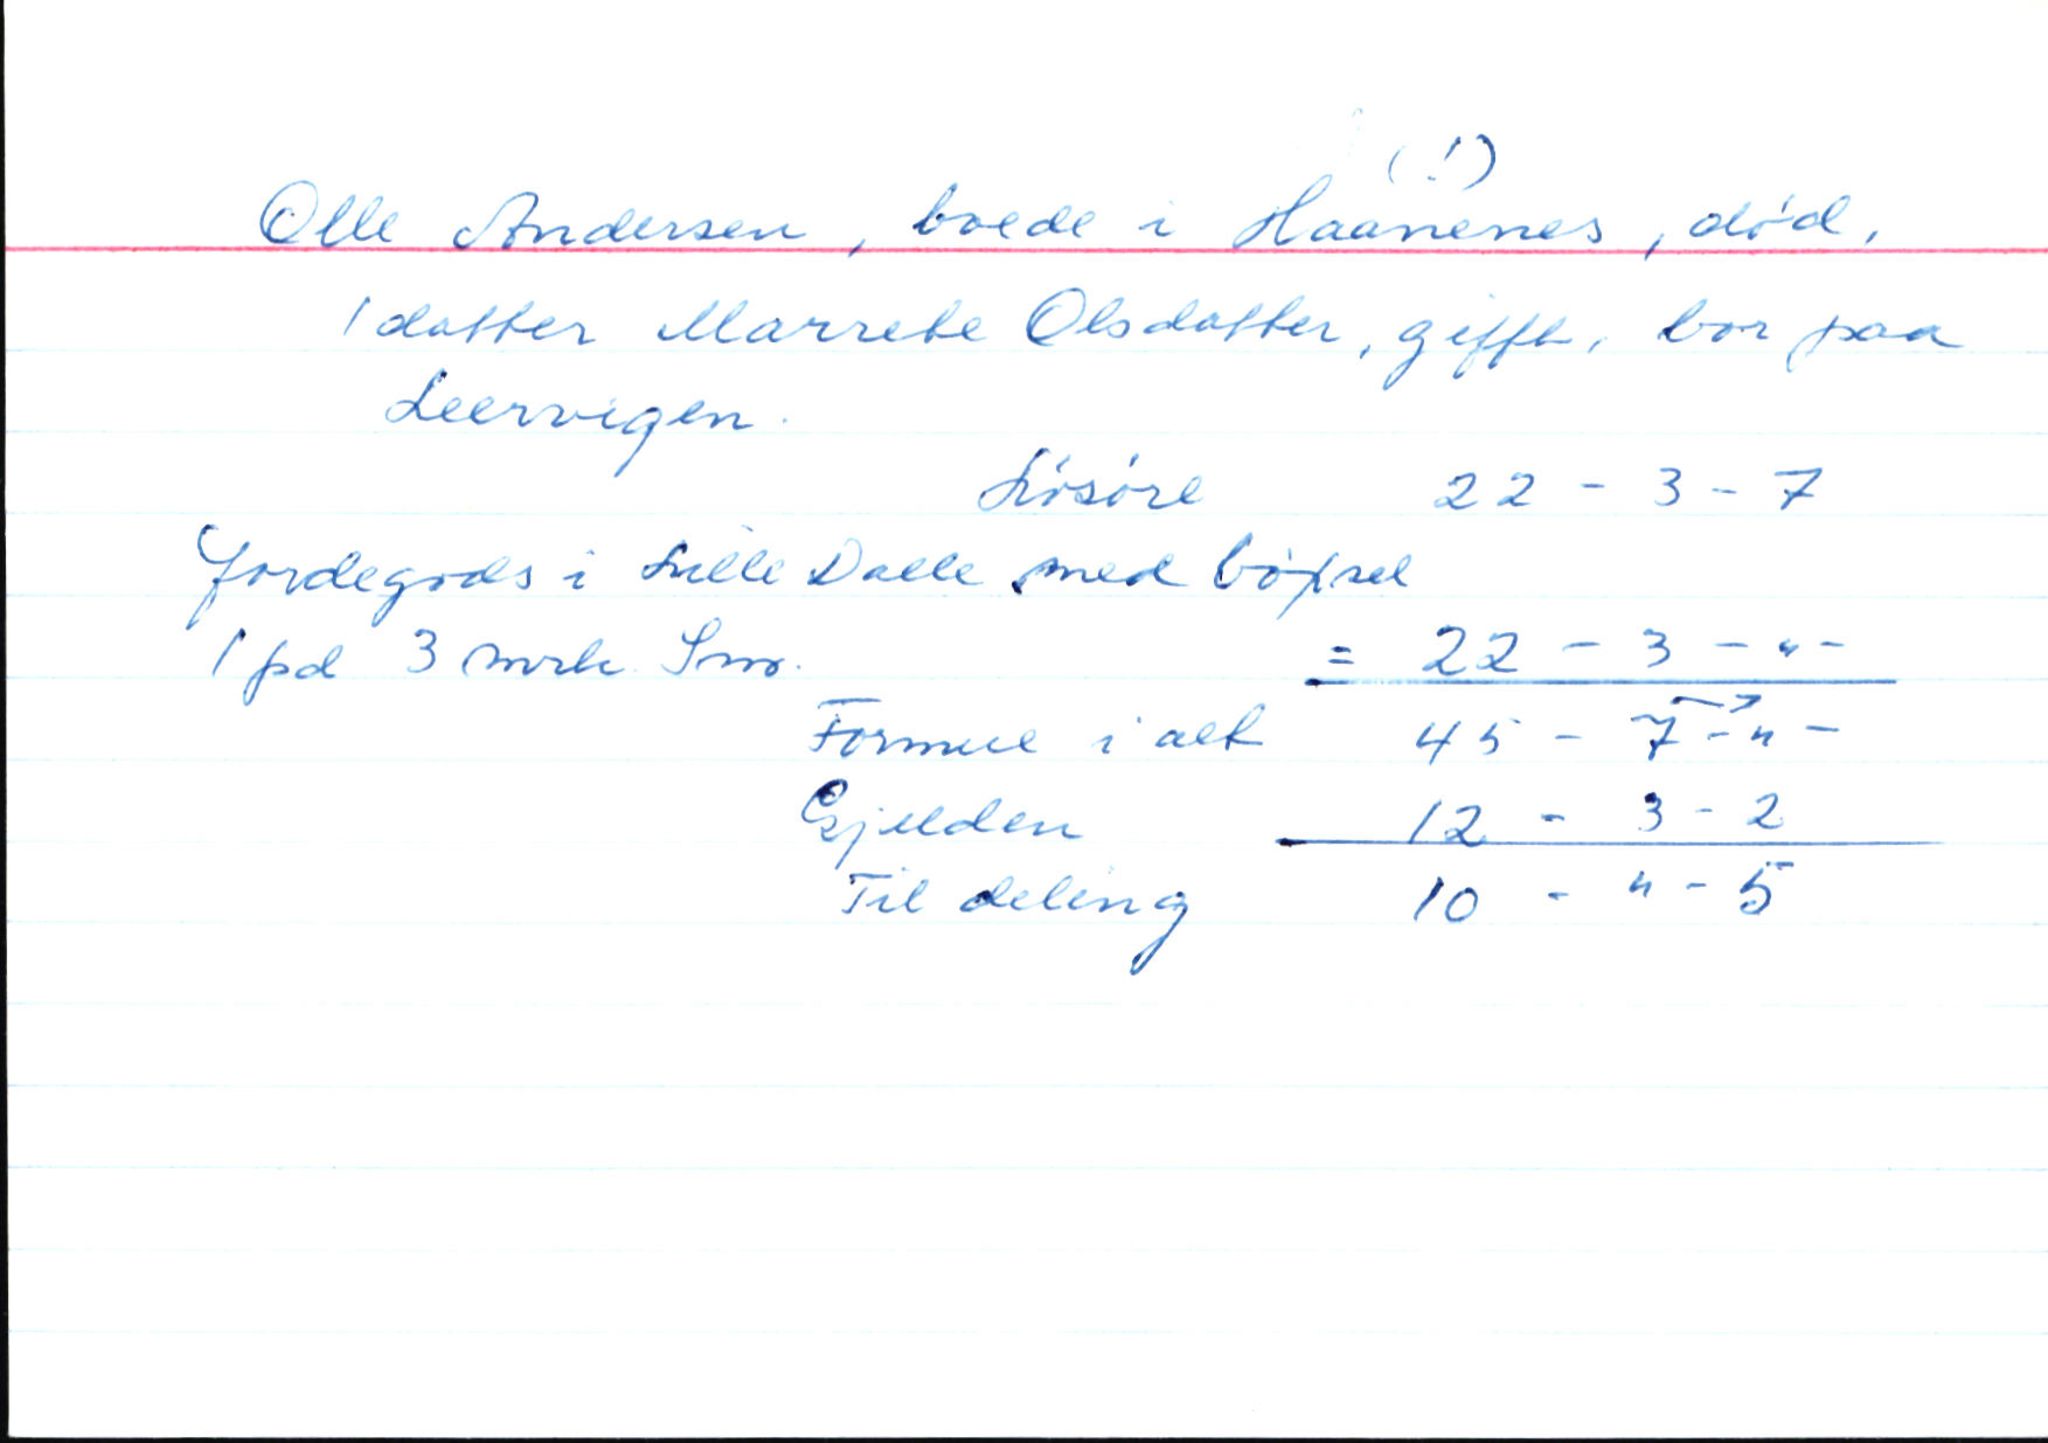 (!)
Olle Andersen, boede i Haanenes, død,
1 datter Marrete Olsdatter, gifft, bor paa
Leervigen.
Løsøre 22 - 3 - 7
Jordegods i Lille Dalle med bøxsel
1 pd 3 mrk. Smr. = 22 - 3 - " -
Formue i alt 45 - 7 - " -
Gjelden 12 - 3 - 2
Til deling 10 - " - 5